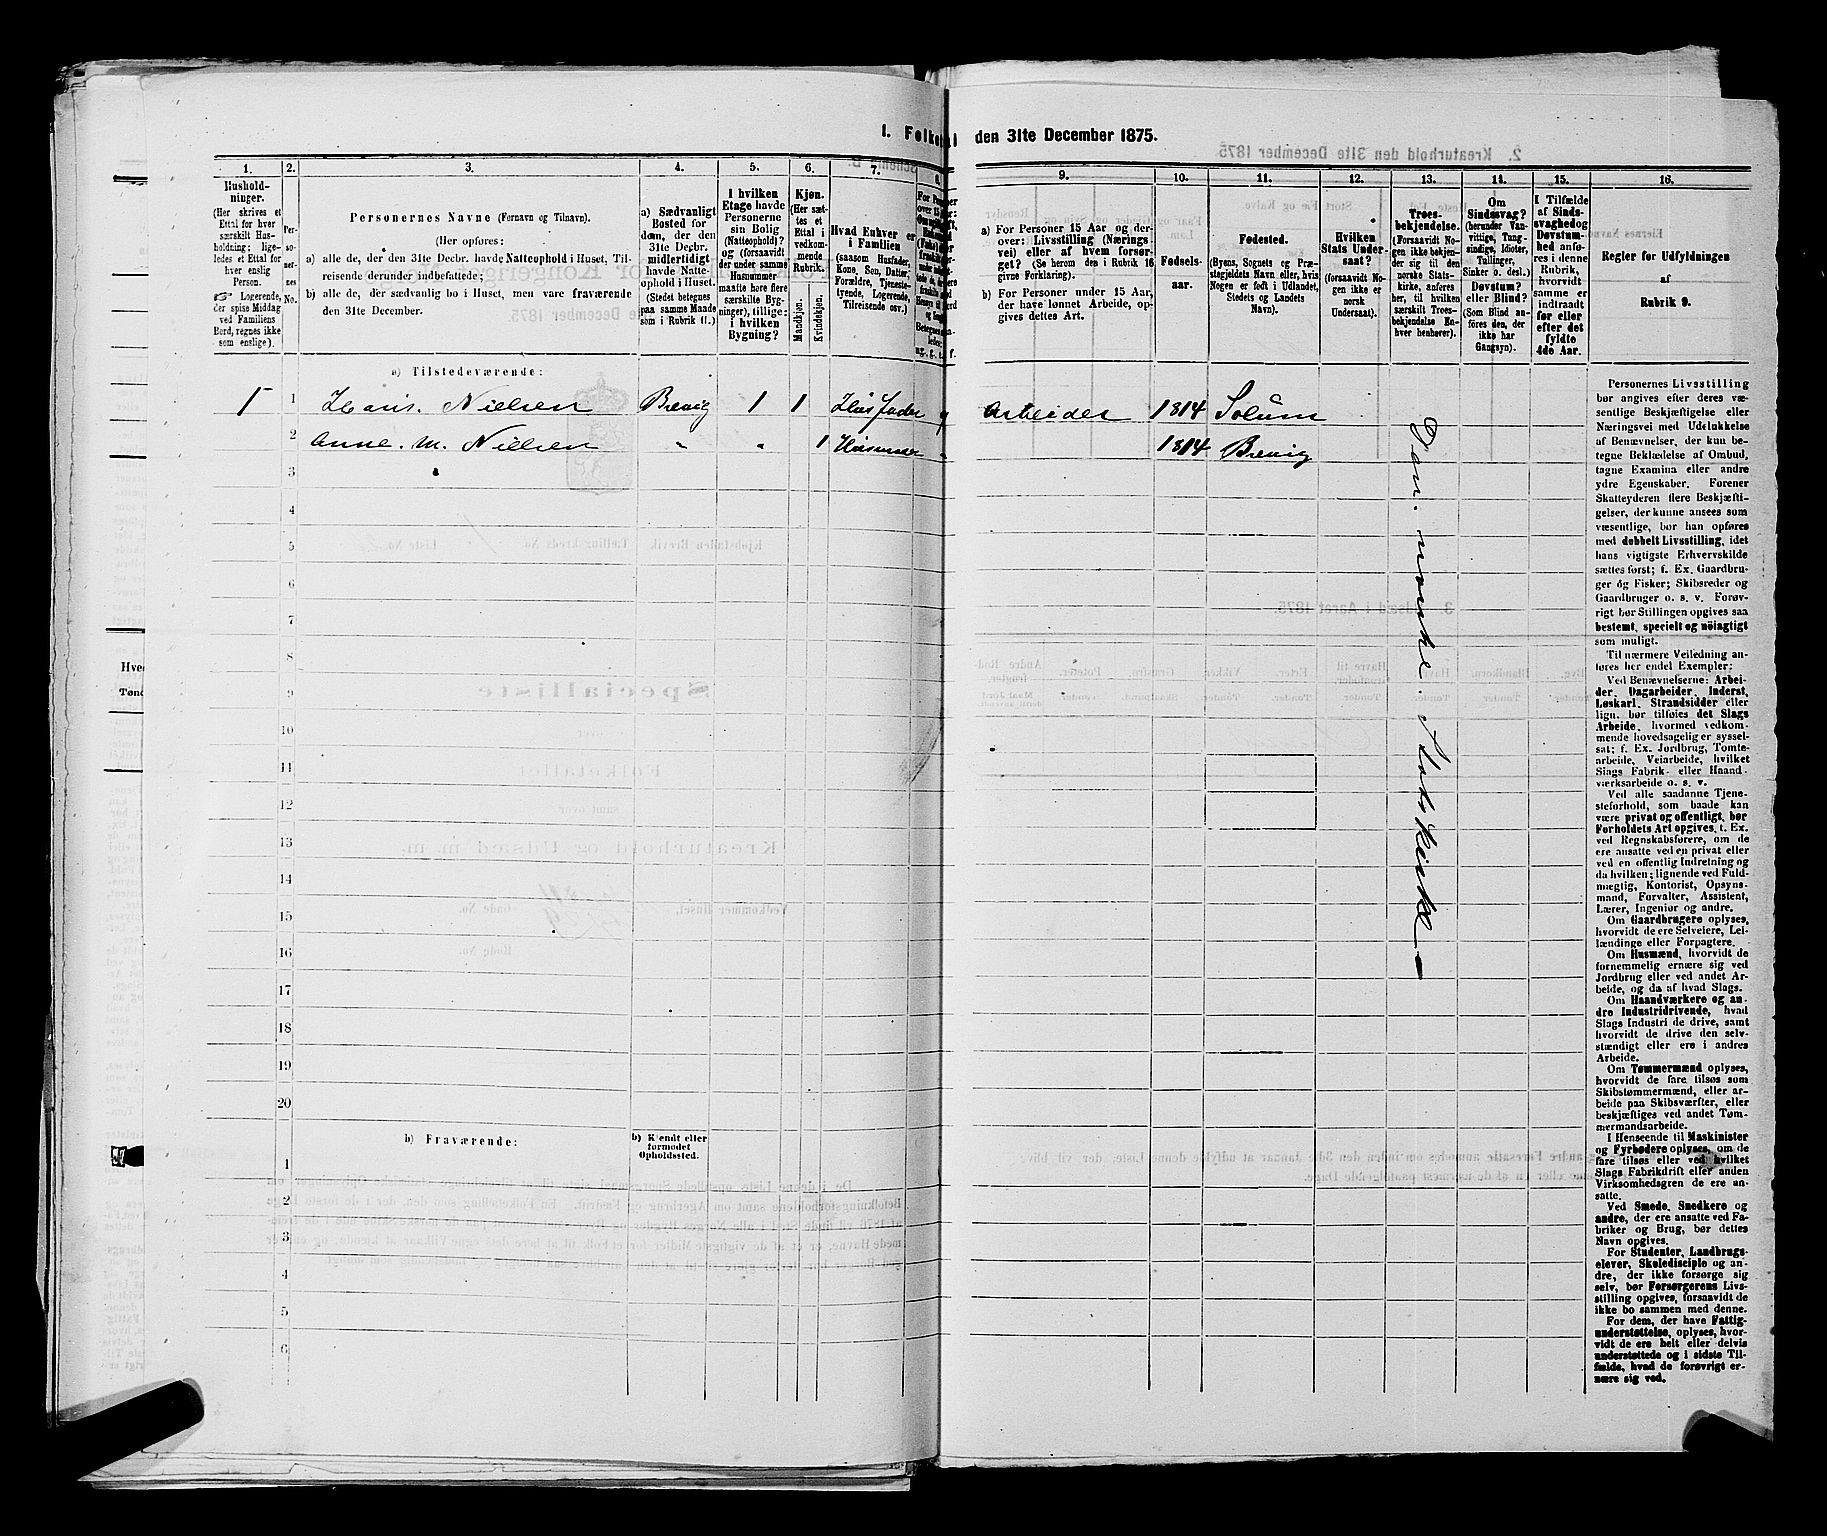 1. Folketal den 31te December 1875.
1.
Hushold-
ninger.
(Her skrives et
Ettal for hver
særskilt Hus-
holdning; lige-
ledes et Ettal for
hver enslig
Person.
☞ Logerende,
der spise Middag
ved Familiens
Bord, regnes ikke
som enslige).
2.
Per-
so-
ner-
nes
No.
3.
Personernes Navne (Fornavn og Tilnavn).
(Her opføres:
a) alle de, der den 31te Decbr. havde Natteophold i Huset, Til-
reisende derunder indbefattede;
b) alle de, der sædvanlig bo i Huset, men vare fraværende
den 31te December.
4.
a) Sædvanligt
Bosted for
dem, der den
31te Decbr.
midlertidigt
havde Natte-
ophold i Huset.
(Stedet betegnes
paa samme Maade
som i Rubrik 11.)
5.
I hvilken
Etage havde
Personerne
sin Bolig
(Natteophold)?
og (forsaavidt
der under samme
Husnummer
maatte høre flere
særskilte Byg-
ninger), tillige:
i hvilken
Bygning?
6.
Kjøn.
(Her sæt-
tes et
Ettal i
vedkom-
mende
Rubrik.
Mandkjøn.
Kvindekjøn.
7.
Hvad Enhver er
i Familien
(saasom Husfader,
Kone, Søn, Datter,
Forældre, Tjeneste-
tyende, Logerende,
Tilreisende osv.)
8.
9.
a) For Personer 15 Aar og der-
over: Livsstilling (Nærings-
vei) eller af hvem forsør-
get? (Se herom den i Rubrik 16
givne Forklaring).
b) For Personer under 15 Aar,
der have lønnet Arbeide, op-
gives dettes Art.
10.
Fødsels-
aar.
11.
Fødested.
(Byens, Sognets og Præ-
stegjeldets Navn eller, hvis
Nogen er født i Udlandet,
Stedets og Landets
Navn).
12.
Hvilken
Stats Under-
saat?
(forsaavidt No-
gen ikke er
norsk
Undersaat).
13.
Troes-
bekjendelse.
(Forsaavidt No-
gen ikke bekjen-
der sig til den
norske Stats-
kirke, anføres
her, til hvilken
særskilt Troes-
bekjendelse En-
hver henhører).
14.
Om
Sindssvag?
(herunder Van-
vittige, Tung-
sindige, Idioter,
Tullinger,
Sinker o. desl.)
Døvstum?
eller Blind?
(Som Blind an-
føres den, der
ikke har
Gangsyn).
15.
I Tilfælde
af Sinds-
svaghed og
Døvstum-
hed anfø-
res i denne
Rubrik,
hvorvidt
samme er
indtraadt
før eller
efter det
fyldte
4de Aar.
16.
Regler før Udfyldningen
af
Rubrik 9.
a) Tilstedeværende:
1 1 Hans. Nielsen Brevig 1 1 Husfader g Arbeider 1814 Solum
2 Anne. M. Nielsen " " 1 Husmoder " 1814 Brevig
Den. norske. Statskirke
3
4
5
6
7
8
9
10
11
12
13
14
15
16
17
18
19
20
b) Fraværende:
b) Kjendt eller
formodet
Opholdssted.
1
2
3
4
5
6
Personernes Livsstilling
bør angives efter deres væ-
sentlige Beskjæftigelse eller
Næringsvei med Udelukkelse
af Benævnelser, der kun be-
tegne Beklædelse af Ombud,
tagne Examina eller andre
ydre Egenskaber. Forener
Skatteyderen flere Beskjæfti-
gelser, der kunne ansees som
væsentlige, bør han opføres
med dobbelt Livsstilling, idet
hans vigtigste Erhvervskilde
sættes først; f. Ex. Gaardbru-
ger og Fisker; Skibsreder og
Gaardbruger o. s. v. Forøv-
rigt bør Stillingen opgives saa
bestemt, specielt og nöiagtigt
som muligt.
Til nærmere Veiledning an-
føres her endel Exempler:
Ved Benævnelserne: Arbei-
der, Dagarbeider, Inderst,
Løskarl, Strandsidder eller
lign. bør tilføies det Slags
Arbeide, hvormed vedkom-
mende hovedsagelig er syssel-
sat; f. Ex. Jordbrug, Tomte-
arbeide, Veiarbeide, hvilket
Slags Fabrik- eller Haand-
værksarbeide o. s. v.
Ved alle saadanne Tjene-
steforhold, som baade kan
være privat og offentligt, bør
Forholdets Art opgives, t. Ex.
ved Regnskabsførere, om de
ere ansatte ved en privat eller
ved en offentlig Indretning og
da hvilken; lignende ved Fuld-
mægtig, Kontorist, Opsyns-
mand, Forvalter, Assistent,
Lærer, Ingeniør og andre.
Om Gaardbrugere oplyses,
hvorvidt de ere Selveiere, Lei-
lændinge eller Forpagtere.
Om Husmænd, hvorvidt de
fornemmelig ernære sig ved
Jordbrug eller ved andet Ar-
beide, og da af hvad Slags.
Om Haandværkere og an-
dre Industridrivende, hvad
Slags Industri de drive, samt
hvorvidt de drive den selv-
stændigt eller ere i andres
Arbeide.
Om Tømmermænd oplyses,
hvorvidt de fare tilsøs som
Skibstømmermænd, eller ar-
beide paa Skibsværfter, eller
beskjæftiges ved andet Tøm-
mermandsarbeide.
I Henseende til Maskinister
og Fyrbødere oplyses, om de
fare tilsøs eller ved hvilket
Slags Fabrikdrift eller anden
Virksomhedsgren de ere an-
satte.
Ved Smede, Snedkere og
andre, der ere ansatte ved Fa-
briker og Brug, bør dettes
Navn opgives.
For Studenter, Landbrugs-
elever, Skoledisciple og an-
dre, der ikke forsørge sig
selv, bør Forsørgerens Livs-
stilling opgives, forsaavidt de
ikke bo sammen med denne.
For dem, der have Fattig-
understøttelse, oplyses, hvor-
vidt de ere helt eller delvis
understøttede og i sidste Til-
fælde, hvad de forøvrigt er-
nære sig ved.